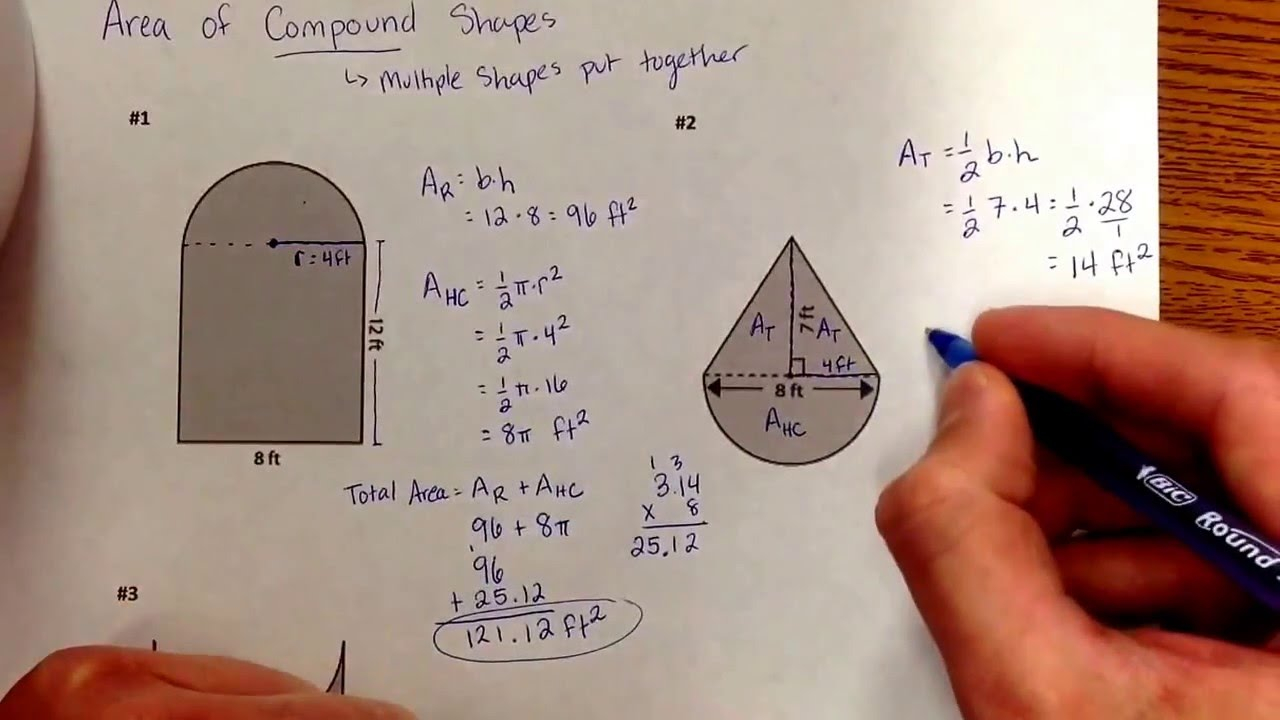 Area of Compound Shapes
↳ Multiple Shapes put together
#1
r = 4ft
12 ft
8 ft
A_R = b·h
= 12 · 8 = 96 ft²
A_HC = ½π·r²
= ½π·4²
= ½π·16
= 8π ft²
Total Area = A_R + A_HC
96 + 8π
1
96
+ 25.12
121.12 ft²
1 3
3.14
x 8
25.12
#2
A_T
7 ft
A_T
4ft
8 ft
A_HC
A_T = ½ b·h
= ½ 7·4 = ½ · 28/1
= 14 ft²
#3
BIC Round